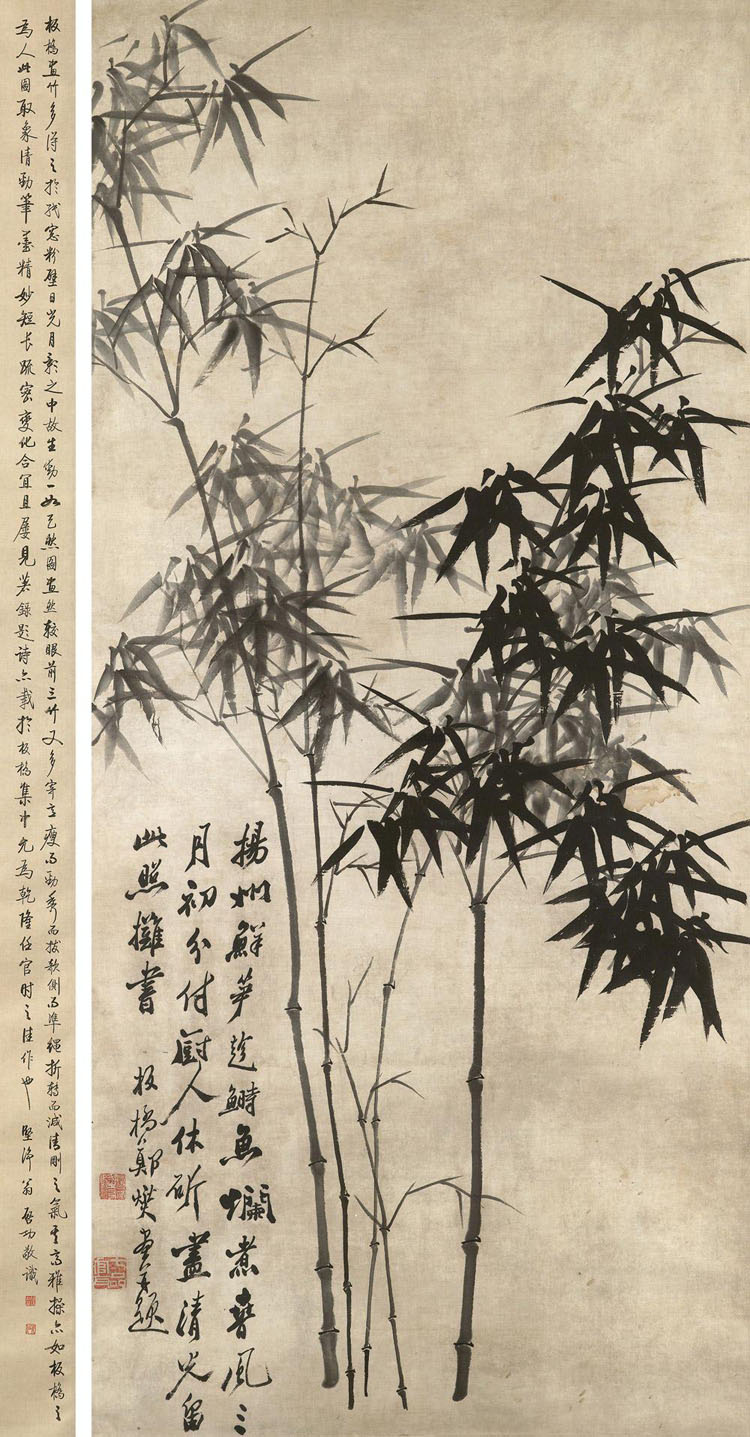 揚州鮮笋趁鰣魚爛煮春風三
月初分付厨人休斫盡清光留
此照攤書 板橋鄭燮畫并題
板橋畫竹多得之於紙窓粉壁日光月影之中故生動一如天然圖畫然較眼前之竹又多 瘦而勁秀而拔欹側而準繩折轉而 清剛之氣其高雅操亦如板橋之
為人此圖取象清勁筆墨精妙短長疏密變化合宜且屢見著錄題詩亦載於板橋集中允為乾隆任官时之佳作也 堅淨翁啓功敬識